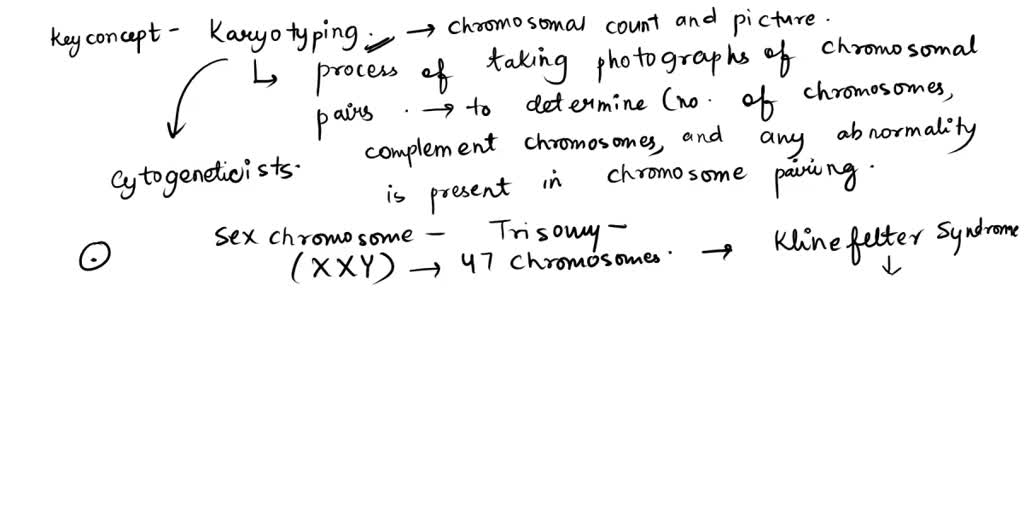 Key concept - Karyotyping. → chromosomal count and picture.
↳ process of taking photographs of chromosomal
pairs. → to determine (no. of chromosomes,
complement chromosomes, and any abnormality
is present in chromosome pairing.
Cytogeneticists.
Sex chromosome - Trisomy -
(XXY) → 47 chromosomes. → Klinefelter Syndrome
↓